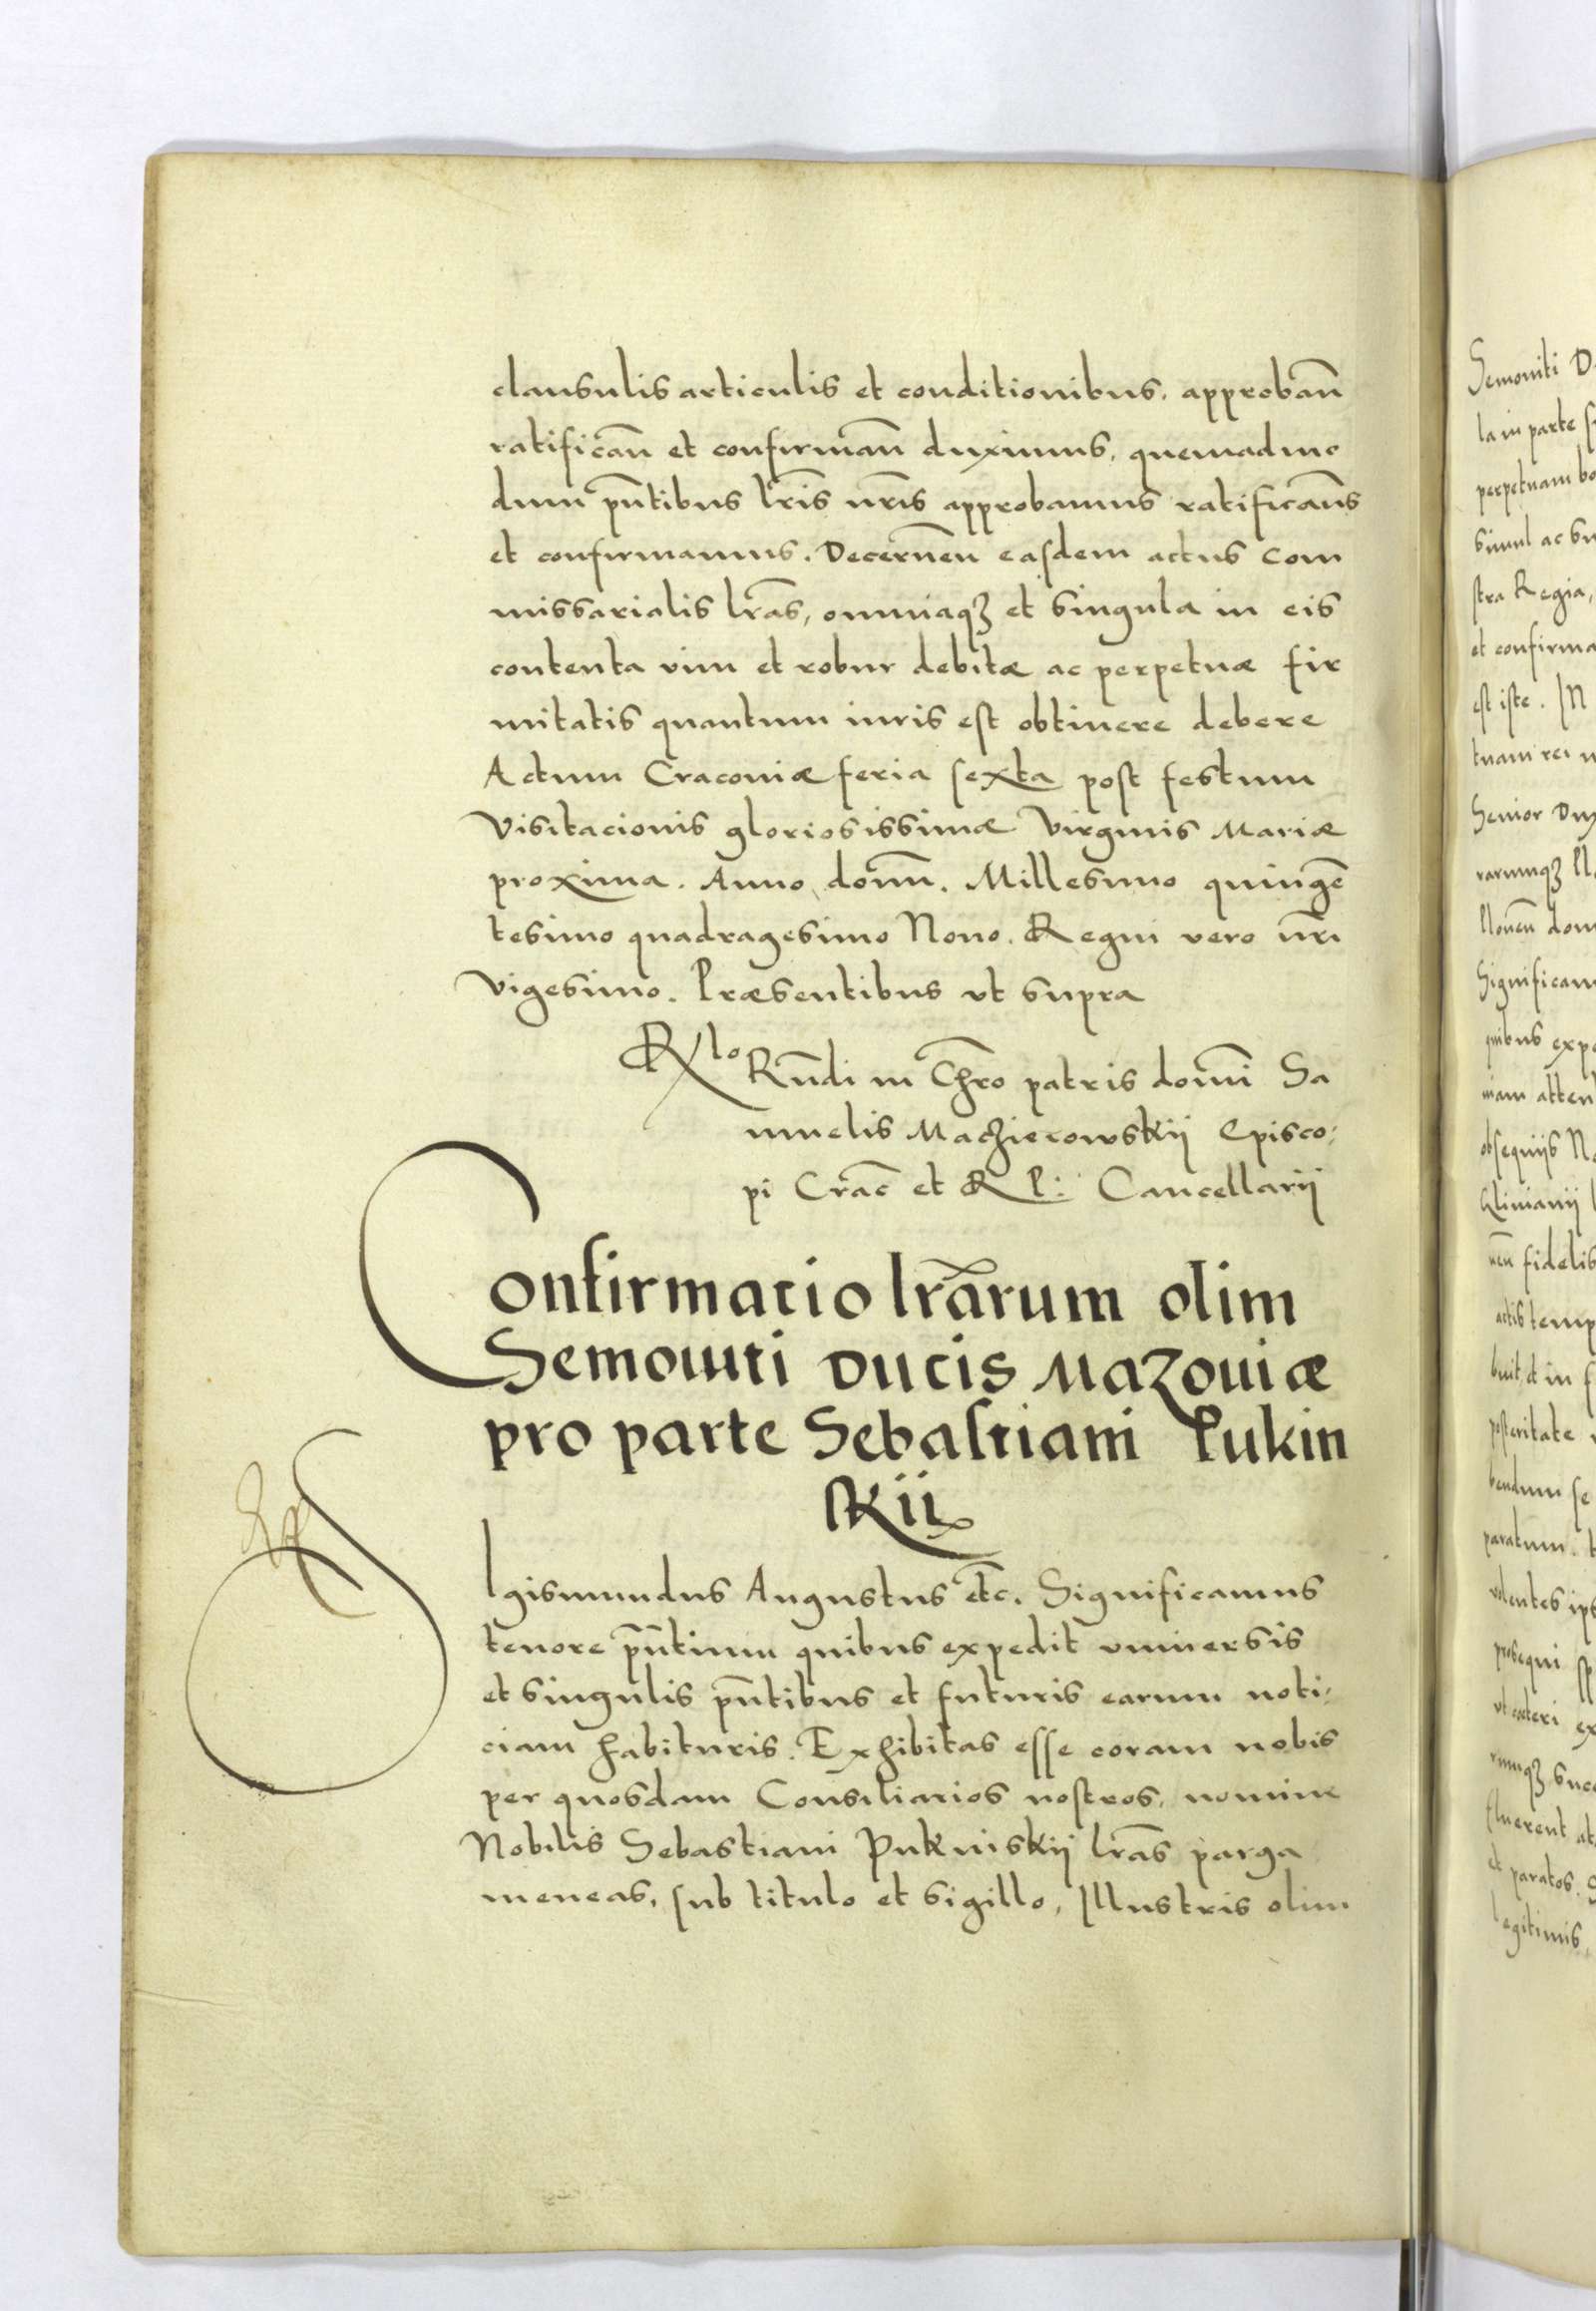 clausulis articulis et conditionibus, approban̄
ratifican̄ et confirman̄ duximus, quemadmo
dum pñtibus lr̃is nr̃is approbamus ratificam̃s
et confirmamus. Decernen̄ easdem actus com
missarialis lr̃as, omniaqꝫ et singula in eis
contenta vim et robur debitæ ac perpetuæ fir
mitatis quantum iuris est obtinere debere
Actum Cracoviæ feria sexta post festum
Visitacionis gloriosissimæ Virginis Mariæ
proxima. Anno domñ. Millesimo quingẽ
tesimo quadragesimo Nono. Regni vero nr̃i
Vigesimo. Præsentibus ut supra
Rlo Rñdi in Chr̃o patris domñi Sa
muelis Maczieiowskij Episco:
pi Crac̃ et R P: Cancellarij
Confirmatio lr̃arum olim
Semouiti Ducis Mazouiæ
pro parte Sebastiani Pukin
skii
Sigismundus Augustus etc̃. Significamus
tenore pñtium quibus expedit universis
et singulis pñtibus et futuris earum noti:
ciam habituris. Exhibitas esse coram nobis
per quosdam Consiliarios nostros, nomine
Nobilis Sebastiani Pukinskij lr̃as parga
meneas, sub titulo et sigillo, Illustris olim
Semoviti D
la in parte
perpetuam bo
simul ac su
stra Regia,
et confirma
est iste. In
tuam rei
Senior Dux
rarumqꝫ
dom
Significam
quibus expe
niam atten
obsequiis
fidelis
actis temp
buit, et in
posteritate
bendum se
paratum.
volentes ips
prosequi
ut cæteri ex
rumqꝫ succ
fluerent at
et paratos.
legitimis,